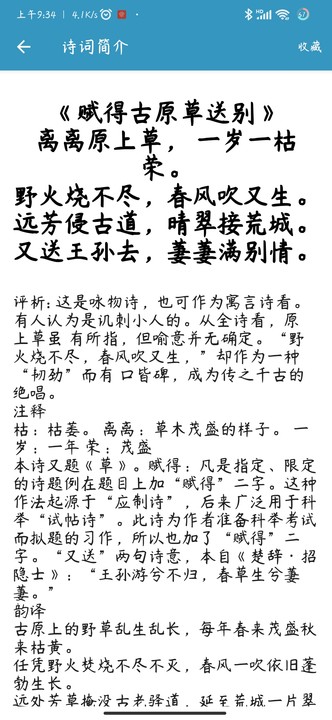 上午9:34 | 4.1K/s
诗词简介
收藏
《赋得古原草送别》
离离原上草，一岁一枯
荣。
野火烧不尽，春风吹又生。
远芳侵古道，晴翠接荒城。
又送王孙去，萋萋满别情。
评析:这是咏物诗，也可作为寓言诗看。
有人认为是讥刺小人的。从全诗看，原
上草虽 有所指，但喻意并无确定。“野
火烧不尽，春风吹又生，”却作为一种
“韧劲”而有 口皆碑，成为传之千古的
绝唱。
注释
枯：枯萎。 离离：草木茂盛的样子。 一
岁：一年 荣：茂盛
本诗又题《 草》。赋得：凡是指定、限定
的诗题例在题目上加“赋得”二字。这种
作法起源于“应制诗”，后来广泛用于科
举“试帖诗”。此诗为作者准备科举考试
而拟题的习作，所以也加了“赋得”二
字。“又送”两句诗意，本自《楚辞·招
隐士》：“王孙游兮不归，春草生兮萋
萋。”
韵译
古原上的野草乱生乱长，每年春来茂盛秋
来枯黄。
任凭野火焚烧不尽不灭，春风一吹依旧蓬
勃生长。
远处芳草掩没古老驿道，延至荒城一片翠